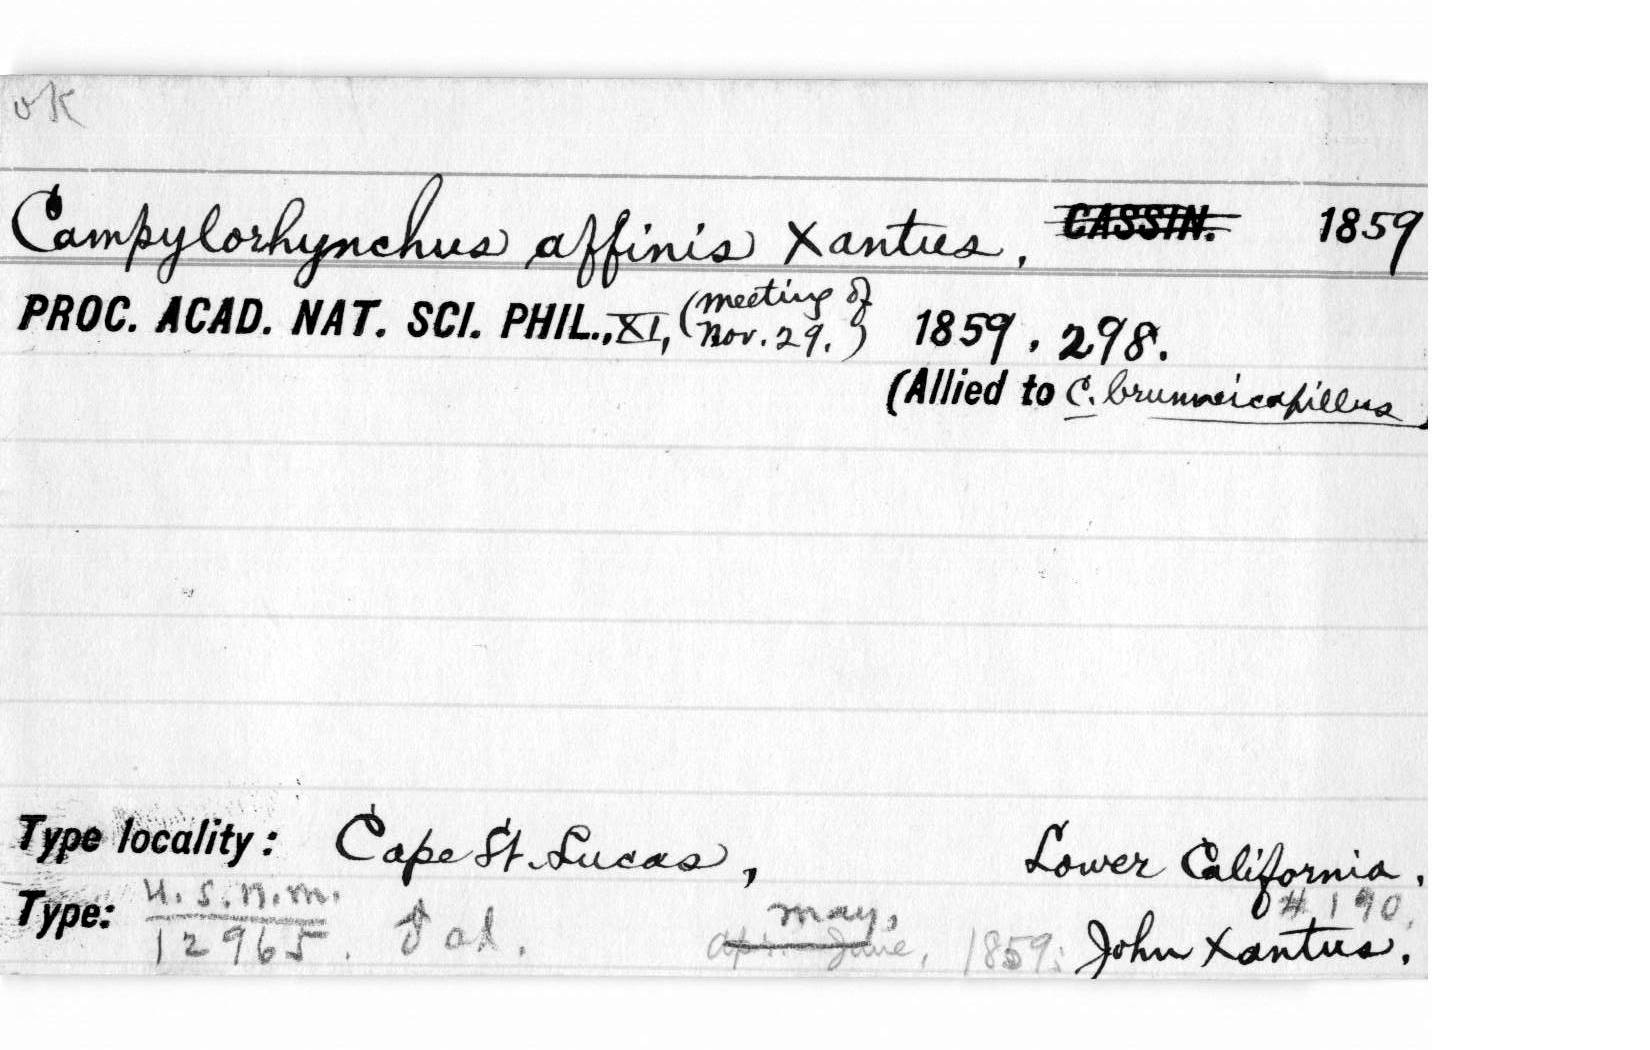 OK
Campylorhynchus affinis Xantus, CASSIN. 1859
PROC. ACAD. NAT. SCI. PHIL., XI, (meeting of Nov. 29.) 1859, 298.
(Allied to C. brunneicapillus)
Type locality: Cape St. Lucas, Lower California.
Type: U.S.N.M. 12965. ad. May, Apr. June, 1859; #190. John Xantus.